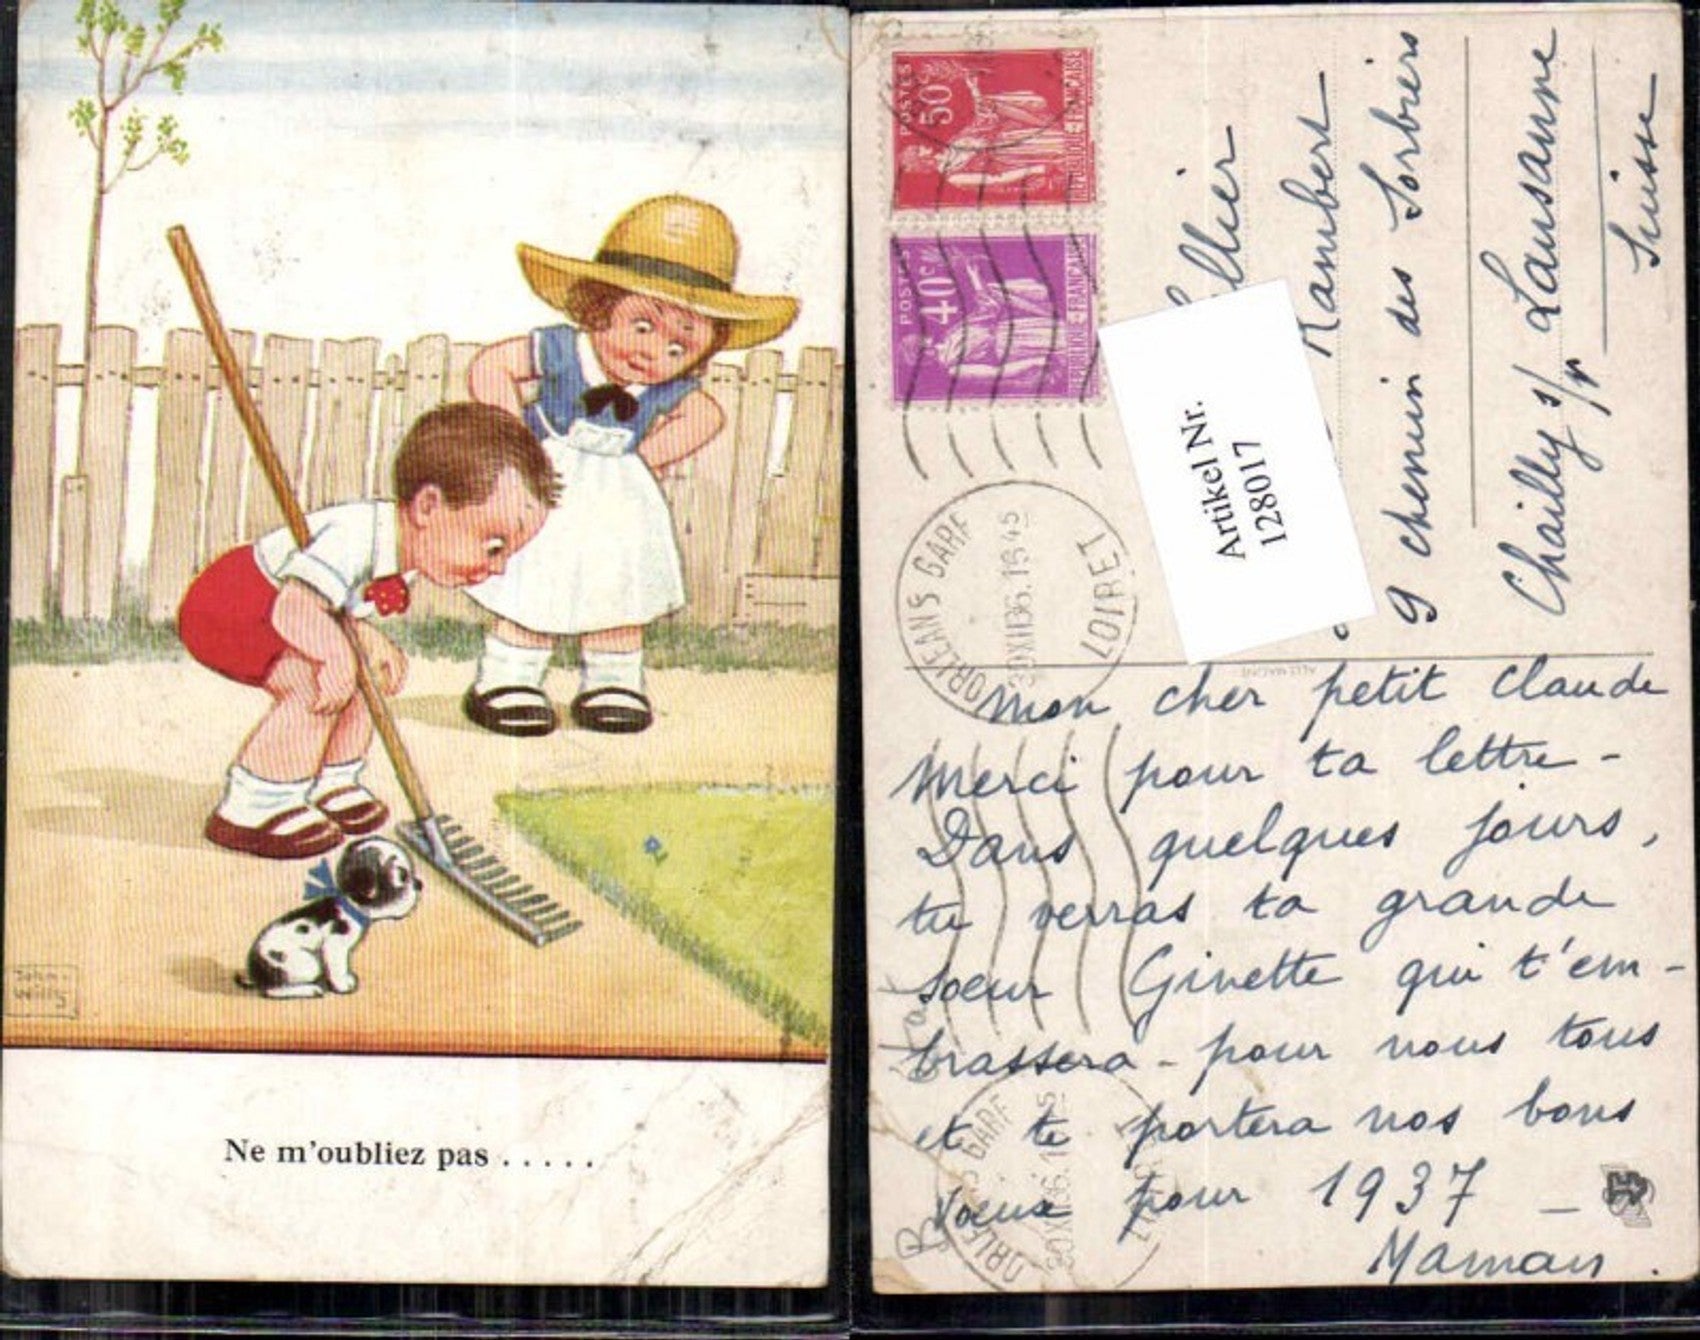 John-
Wills
Ne m'oubliez pas . . . . .
POSTES
50c
REPUBLIQUE FRANÇAISE
POSTES
40c
REPUBLIQUE FRANÇAISE
ORLEANS GARE
30 XII 36. 1845
LOIRET
Artikel Nr.
128017
Rambert
9 chemin des Sorbiers
Chailly s/ Lausanne
Suisse
ALLEMAGNE
Mon cher petit Claude
Merci pour ta lettre -
Dans quelques jours,
tu verras ta grande
soeur Ginette qui t'em-
brassera - pour nous tous
et te portera nos bons
voeux pour 1937 -
Maman.
ORLEANS GARE
30 XII 36. 1845